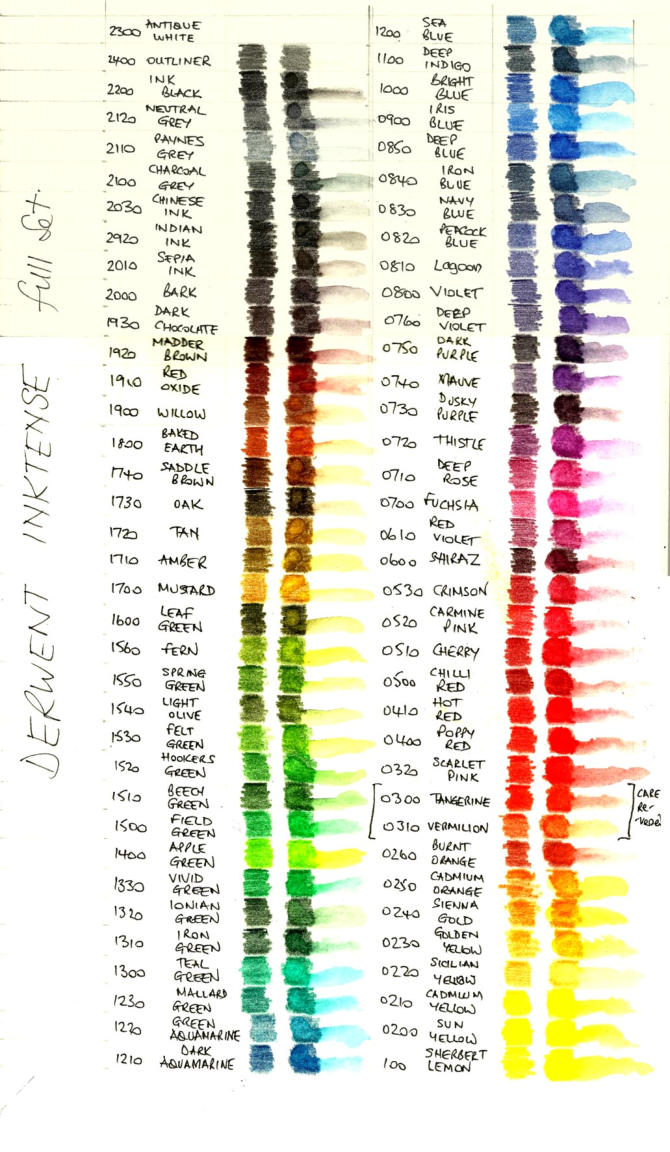 DERWENT INKTENSE full set.
2300 ANTIQUE
WHITE
2400 OUTLINER
2200 INK
BLACK
2120 NEUTRAL
GREY
2110 PAYNES
GREY
2100 CHARCOAL
GREY
2030 CHINESE
INK
2920 INDIAN
INK
2010 SEPIA
INK
2000 BARK
1930 DARK
CHOCOLATE
1920 MADDER
BROWN
1910 RED
OXIDE
1900 WILLOW
1800 BAKED
EARTH
1740 SADDLE
BROWN
1730 OAK
1720 TAN
1710 AMBER
1700 MUSTARD
1600 LEAF
GREEN
1560 FERN
1550 SPRING
GREEN
1540 LIGHT
OLIVE
1530 FELT
GREEN
1520 HOOKERS
GREEN
1510 BEECH
GREEN
1500 FIELD
GREEN
1400 APPLE
GREEN
1330 VIVID
GREEN
1320 IONIAN
GREEN
1310 IRON
GREEN
1300 TEAL
GREEN
1230 MALLARD
GREEN
1220 GREEN
AQUAMARINE
1210 DARK
AQUAMARINE
1200 SEA
BLUE
1100 DEEP
INDIGO
1000 BRIGHT
BLUE
0900 IRIS
BLUE
0850 DEEP
BLUE
0840 IRON
BLUE
0830 NAVY
BLUE
0820 PEACOCK
BLUE
0810 Lagoon
0800 VIOLET
0760 DEEP
VIOLET
0750 DARK
PURPLE
0740 MAUVE
0730 DUSKY
PURPLE
0720 THISTLE
0710 DEEP
ROSE
0700 FUCHSIA
0610 RED
VIOLET
0600 SHIRAZ
0530 CRIMSON
0520 CARMINE
PINK
0510 CHERRY
0500 CHILLI
RED
0410 HOT
RED
0400 POPPY
RED
0320 SCARLET
PINK
0300 TANGERINE
0310 VERMILION
CARE
RE-
0260 BURNT
ORANGE
0250 CADMIUM
ORANGE
0240 SIENNA
GOLD
0230 GOLDEN
YELLOW
0220 SICILIAN
YELLOW
0210 CADMIUM
YELLOW
0200 SUN
YELLOW
100 SHERBERT
LEMON